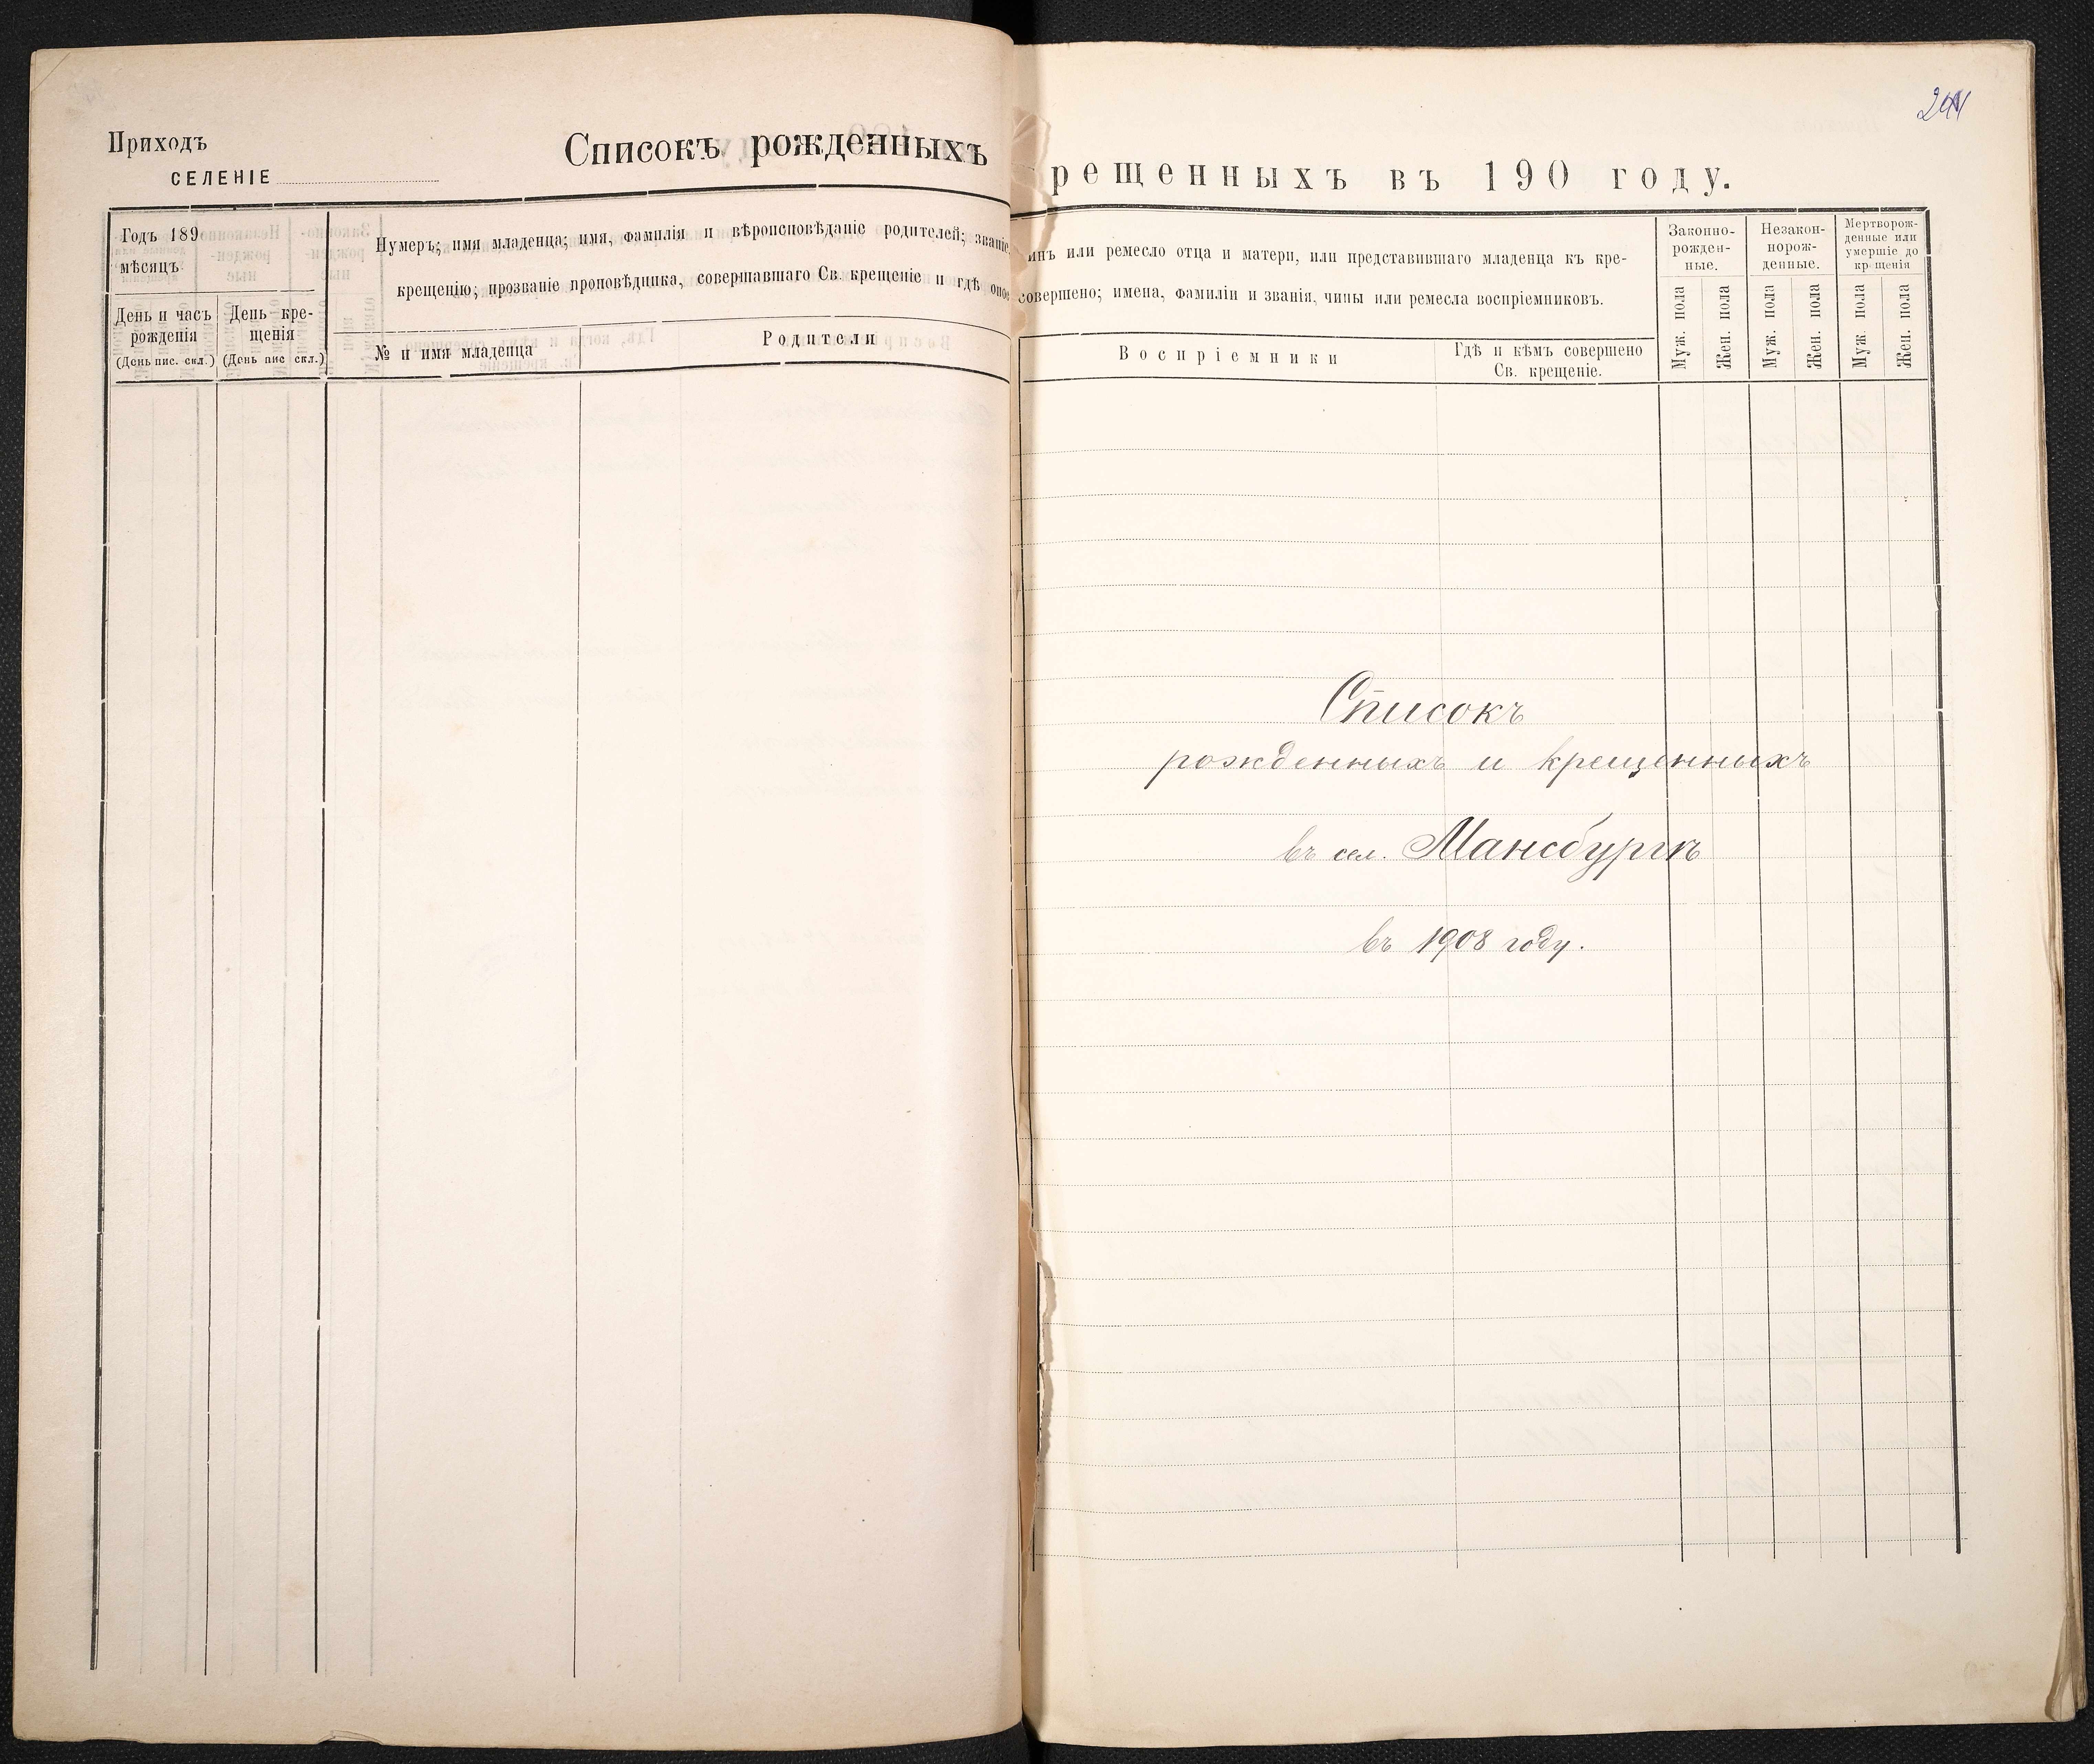 Приходъ
СЕЛЕНІЕ
Списокъ рожденныхъ
Годъ 189
мѣсяцъ
День и часъ рожденія
(День пис. скл.)
День кре-
щенія
(День пис скл.)
Нумеръ; имя младенца; имя, фамилія и вѣроисповѣданіе родителей; званіе,
крещенію; прозваніе проповѣдника, совершавшаго Св. крещеніе и гдѣ оное
№ и имя младенца
Родители
244
рещенныхъ въ 190 году.
инъ или ремесло отца и матери, или представившаго младенца къ кре-
совершено; имена, фамиліи и званія, чины или ремесла воспріемниковъ.
Воспріемники
Гдѣ и кѣмъ совершено
Св. крещеніе.
Законно-
рожден-
ные.
Незакон-
норож-
денные.
Мертворож-
денные или
умершіе до
кр щенія
Муж. пола
Жен. пола
Муж. пола
Жен. пола
Муж. пола
Жен. пола
Списокъ
рожденныхъ и крещенныхъ
въ сел. Мансбургъ
въ 1908 году.